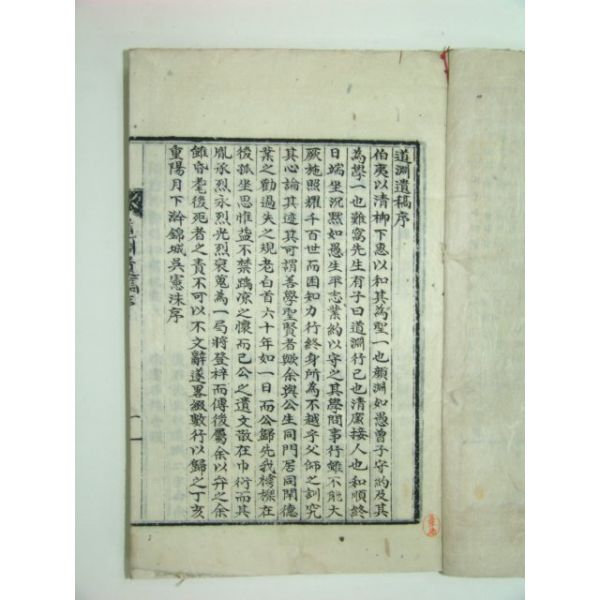 道淵遺稿序
伯夷以清柳下惠以和其為聖一也顏淵如愚曾子守約及其
為學一也難窩先生有子曰道淵行己也清廉接人也和順終
日端坐沉默如愚生平志業約以守之其學問事行雖不能大
厥施照耀千百世而困知力行終身所為不越乎父師之訓究
其心論其迹其可謂善學聖賢者歟余與公生同門居同閈德
業之勸過失之規老白首六十年如一日而公歸先我樗櫟在
後孤坐思惟益不禁踽凉之懷而已公之遺文散在巾衍而其
胤承烈永烈光烈裒蒐為一局將登梓而傳後屬余以弁之余
雖昏耄後死者之責不可以不文辭遂畧綴數行以歸之丁亥
重陽月下澣錦城吳憲洙序
道淵遺稿序
一